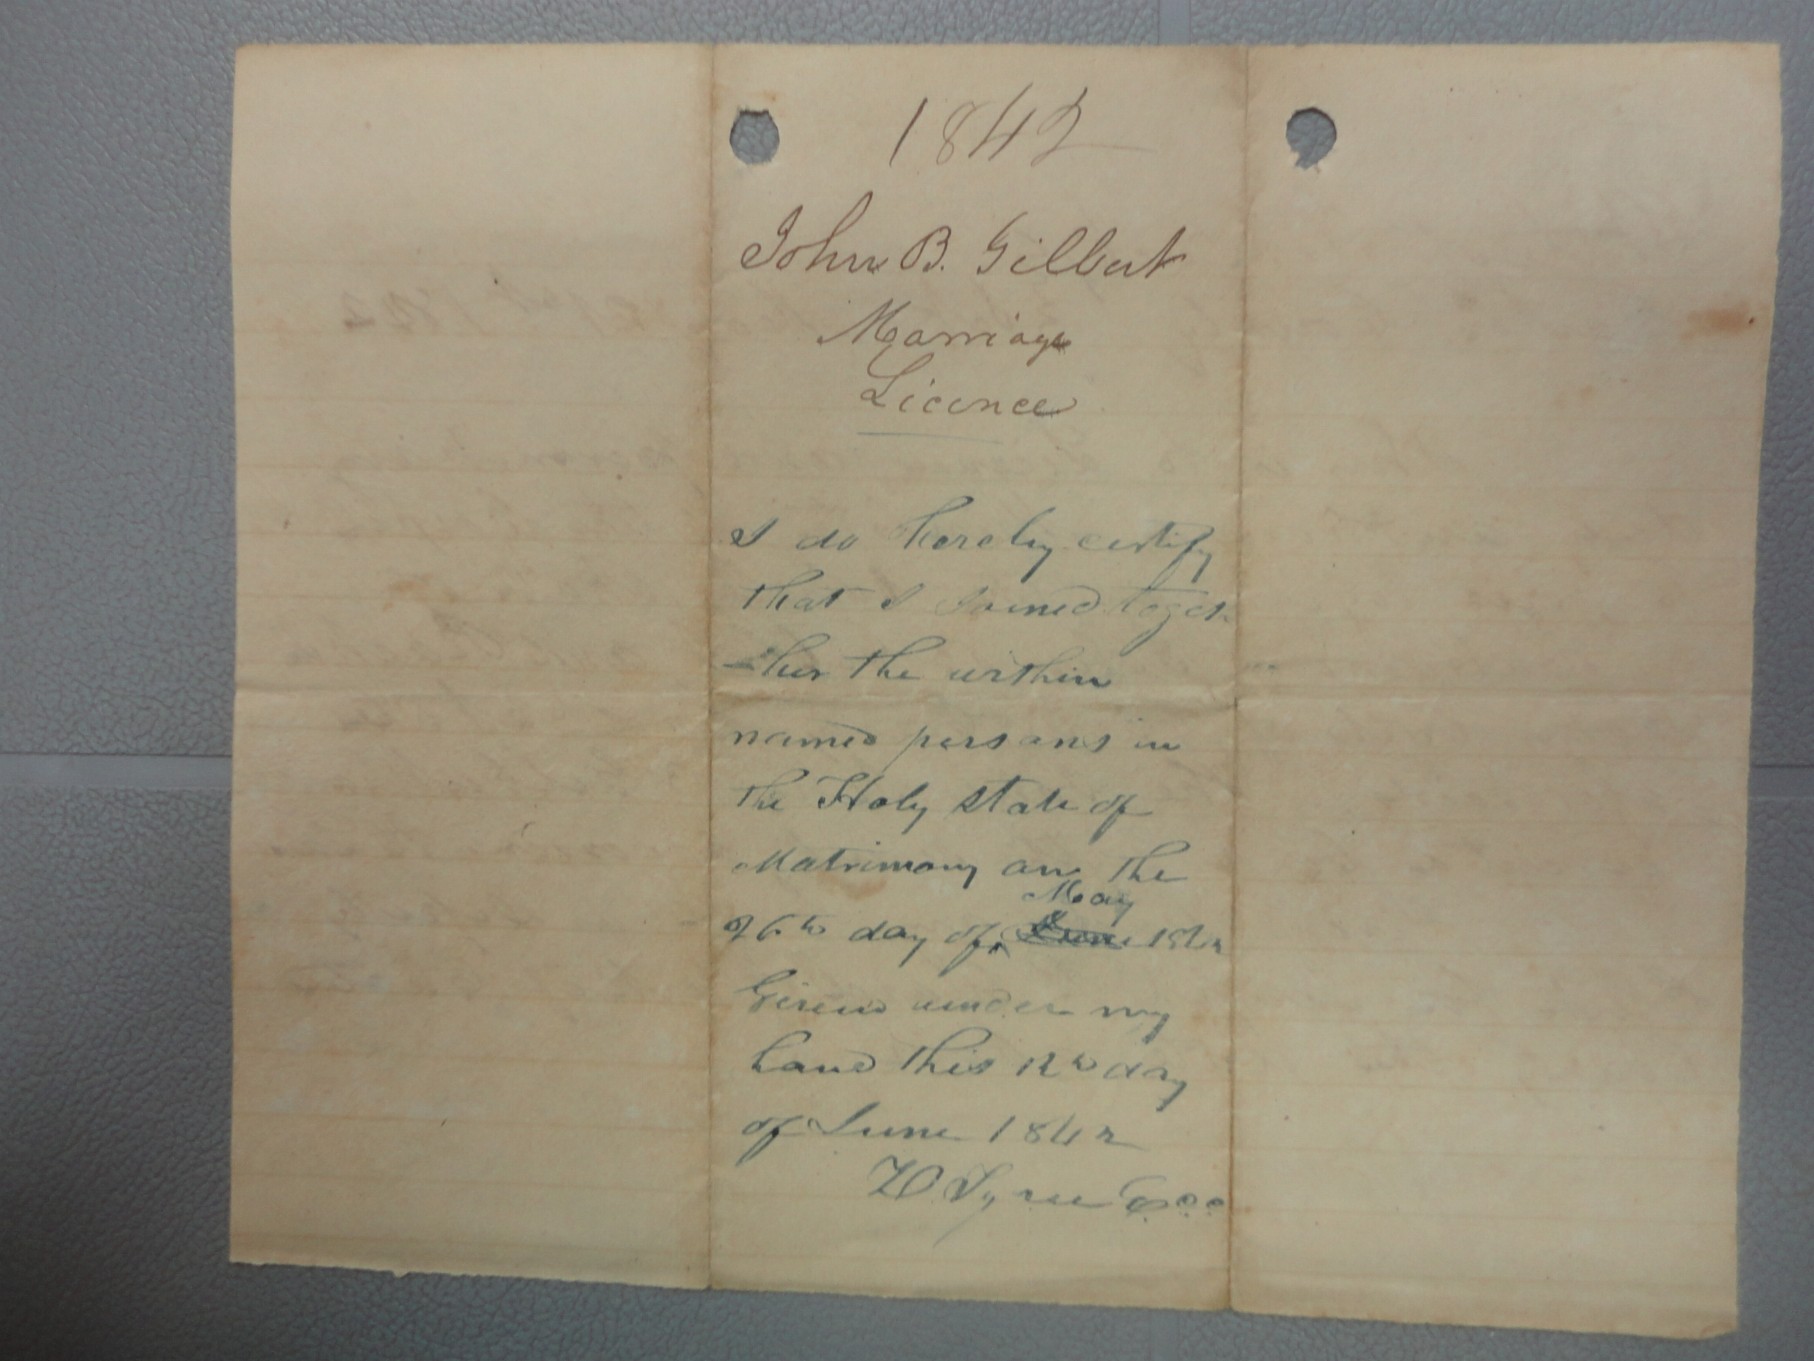 1842
John B. Gilbert
Marriage
Licence
I do hereby certify
that I Joined toget
-ther the within
named persons in
the Holy state of
Matrimony on the
May
26th day of June 1842
Given under my
hand this 12th day
of June 1842